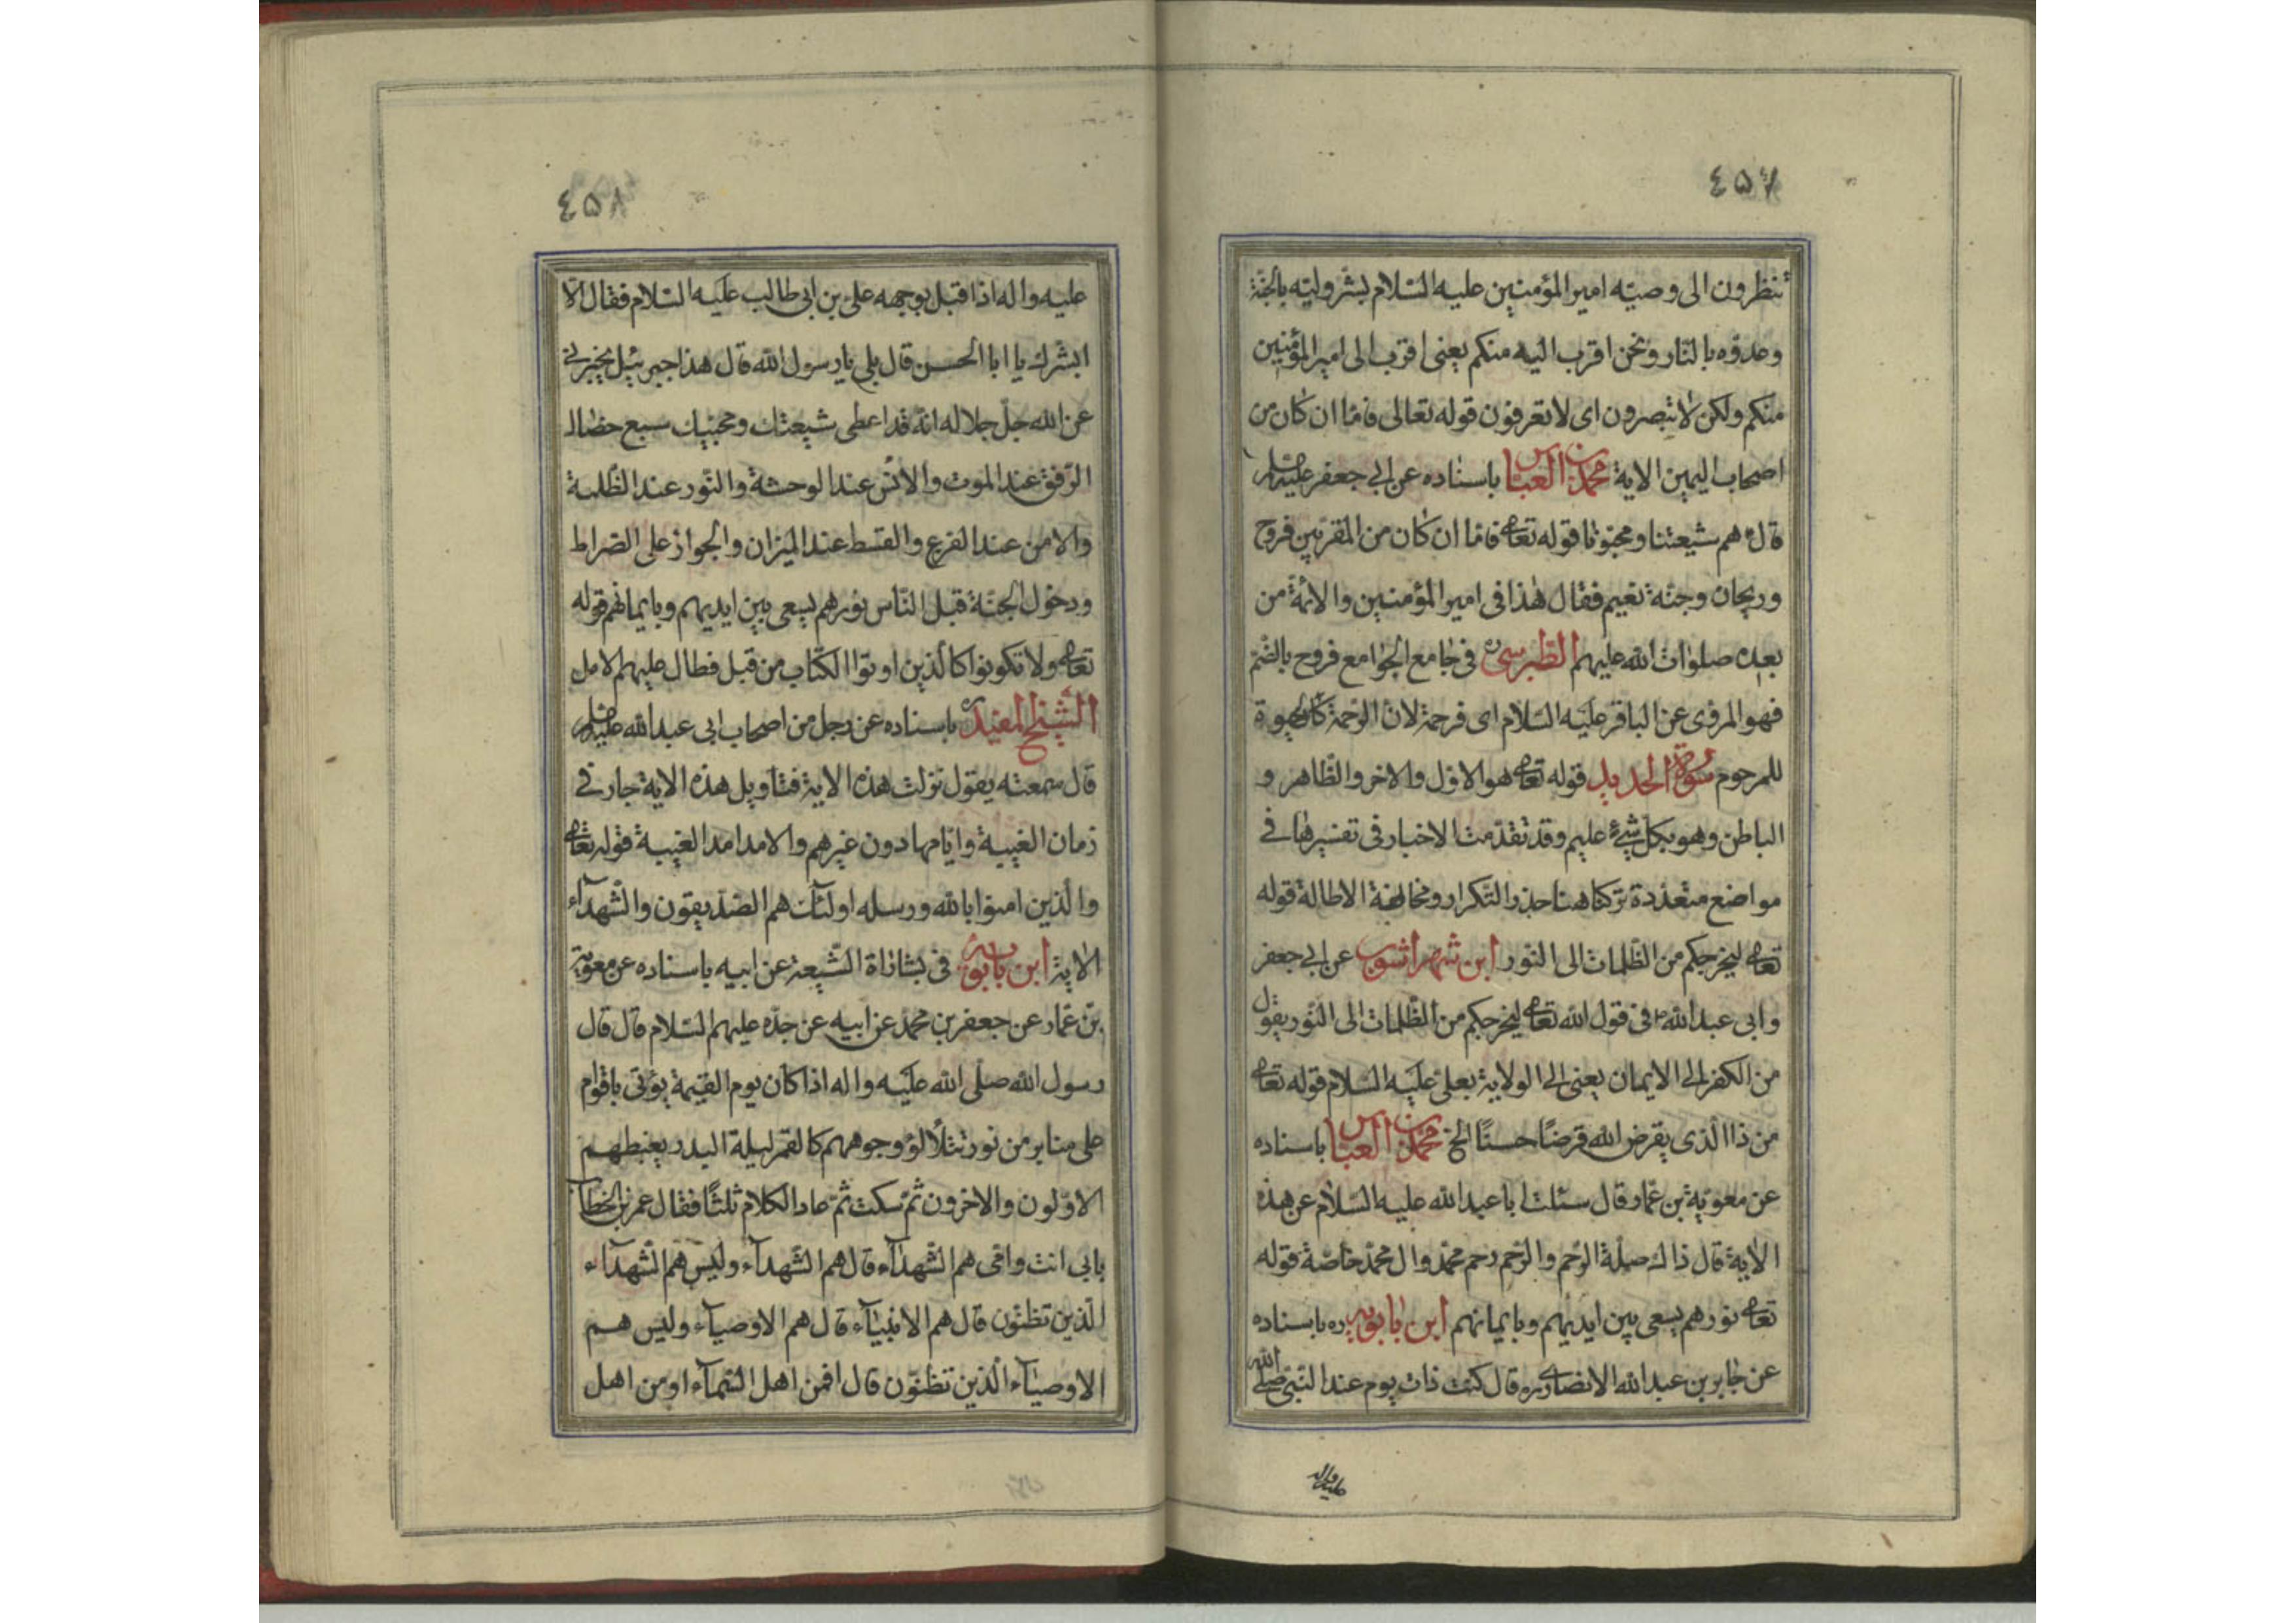 ٤٥٧
تنظرون الى وصيته امير المؤمنين عليه السّلام بشّر وليّه بالجنّة
وعدوّه بالنّار ونحن اقرب اليه منكم يعنى اقرب الى امير المؤمنين
منكم ولكن لا تبصرون اى لا تعرفون قوله تعالى فامّا ان كان من
اصحاب اليمين الاية محمّد بن العبّاس باسناده عن ابي جعفر عليه السلم
قال هم شيعتنا ومحبّونا قوله تعا فامّا ان كان من المقرّبين فروح
وريحان وجنّة نعيم فقال هذا فى امير المؤمنين والائمّة من
بعده صلوات الله عليهم الطّبرسى ره فى جامع الجوامع فروح بالضّمّ
فهو المروّى عن الباقر عليه السّلام اى فرحمة لان الرّحمة كالحيوة
للمرحوم سورة الحديد قوله تعا هو الاوّل والاخر والظّاهر و
الباطن وهو بكلّ شيءٍ عليم وقد تقدّمت الاخبار فى تفسيرها في
مواضع متعدّدة تركناها هنا حذر التّكرار ومخافة الاطالة قوله
تعا ليخرجكم من الظّلمات الى النّور ابن شهراشوب عن ابي جعفر
وابى عبد الله ع فى قول الله تعا ليخرجكم من الظّلمات الى النّور يقول
من الكفر الى الايمان يعنى الى الولاية بعلىّ عليه السّلام قوله تعا
من ذا الّذى يقرض الله قرضًا حسنًا الخ محمّد بن العبّاس باسناده
عن معوية بن عمّار قال سئلت ابا عبد الله عليه السّلام عن هذه
الاية قال ذاك صلة الرّحم والرّحم رحم محمّد وال محمّد خاصّة قوله
تعا نورهم يسعى بين ايديهم وبايمانهم ابن بابويه ره باسناده
عن جابر بن عبد الله الانصارى ره قال كنت ذات يوم عند النّبىّ صلّى الله
عليه واله
٤٥٨
عليه واله اذا قبل بوجهه على بن ابى طالب عليه السّلام فقال الا
ابشّرك يا ابا الحسن قال بلى يا رسول الله قال هذا جبرئيل يخبرنى
عن الله جلّ جلاله انّه قد اعطى شيعتك ومحبّيك سبع خصال
الرّفق عند الموت والانس عند الوحشة والنّور عند الظّلمة
والامن عند الفزع والقسط عند الميزان والجواز على الصّراط
ودخول الجنّة قبل النّاس نورهم يسعى بين ايديهم وبايمانهم قوله
تعا ولا تكونوا كالّذين اوتوا الكتاب من قبل فطال عليهم الامل
الشّيخ المفيد ره باسناده عن رجل من اصحاب ابى عبد الله عليه السلم
قال سمعته يقول نزلت هذه الاية فتاويل هذه الاية جار في
زمان الغيبة وايّامها دون غيرهم والامد امد الغيبة قوله تعا
والّذين امنوا بالله ورسله اولئك هم الصّدّيقون والشّهدآء
الاية ابن بابويه فى بشاراة الشّيعة عن ابيه باسناده عن معوية
بن عمّار عن جعفر بن محمّد عن ابيه عن جدّه عليهم السّلام قال قال
رسول الله صلّى الله عليه واله اذا كان يوم القيمة يؤتى باقوام
على منابر من نور تتلألؤ وجوههم كالقمر ليلة البدر يغبطهم
الاوّلون والاخرون ثمّ سكت ثمّ عاد الكلام ثلثًا فقال عمر بن الخطّاب
بابى انت وامّى هم الشّهدآء قال هم الشّهدآء وليس هم الشّهدآء
الّذين تظنّون قال هم الانبيآء قال هم الاوصيآء وليس هم
الاوصيآء الّذين تظنّون قال افمن اهل السّمآء او من اهل